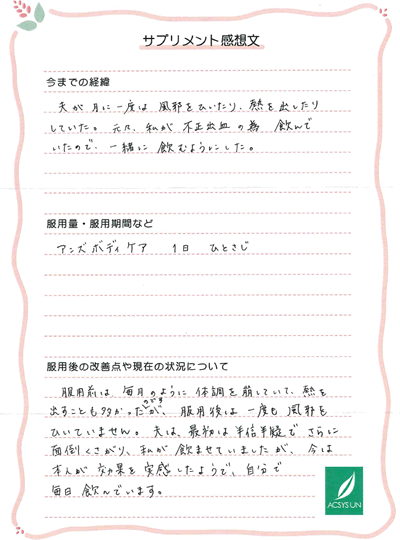 サプリメント感想文
今までの経緯
夫が月に一度は風邪をひいたり、熱を出したり
していた。元々、私が不正出血の為飲んで
いたので、一緒に飲むようにした。
服用量・服用期間など
アンズボディケア 1日 ひとさじ
服用後の改善点や現在の状況について
服用前は毎月のように体調を崩していて、熱を
出すことも多かったのですが、服用後は一度も風邪を
ひいていません。夫は、最初は半信半疑でさらに
面倒くさがり、私が飲ませていましたが、今は
本人が効果を実感したようで、自分で
毎日飲んでいます。
ACSYSUN